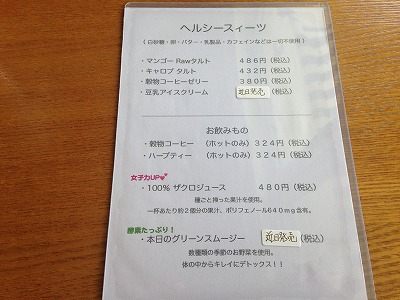 ヘルシースィーツ
( 白砂糖・卵・バター・乳製品・カフェインなどは一切不使用 )
・マンゴー Rawタルト 486円(税込)
・キャロブ タルト 432円(税込)
・穀物コーヒーゼリー 380円(税込)
・豆乳アイスクリーム 近日発売 (税込)
お飲みもの
・穀物コーヒー (ホットのみ) 324円(税込)
・ハーブティー (ホットのみ) 324円(税込)
女子力UP
・100% ザクロジュース 480円(税込)
種ごと搾った果汁を使用。
一杯あたり約2個分の果汁、ポリフェノール640mg含有。
酵素たっぷり!
・本日のグリーンスムージー 近日発売 (税込)
数種類の季節のお野菜を使用。
体の中からキレイにデトックス!!